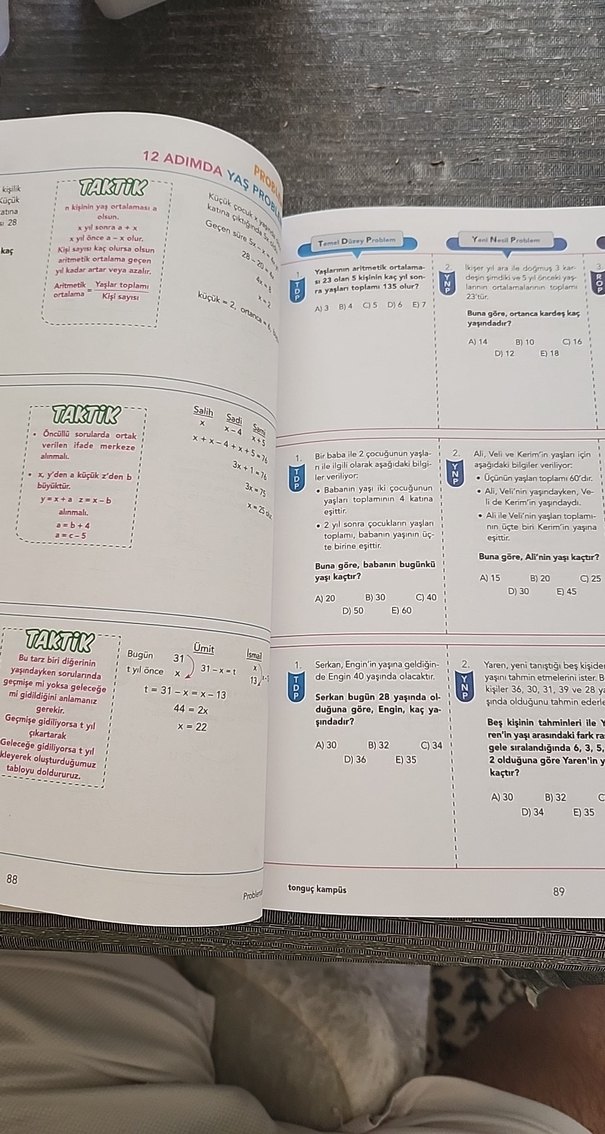 12 ADIMDA YAŞ
kişilik
TAKTİK
n kişinin yaş ortalaması a
olsun.
x yıl sonra a + x
x yıl önce a – x olur.
Kişi sayısı kaç olursa olsun
aritmetik ortalama geçen
yıl kadar artar veya azalır.
Aritmetik ortalama = Yaşlar toplamı / Kişi sayısı
Küçük
28
kaç
Küçük çocuk x
katına çıktığında
Geçen süre 6x – x
x = 2
küçük = 2, ortanca = 6,
TAKTİK
• Öncüllü sorularda ortak
verilen ifade merkeze
alınmalı.
• x, y'den a küçük z'den b
büyüktür.
y = x + a z = x – b
alınmalı.
a = b + 4
a = c – 5
Salih Sadi Sami
x x – 4 x + 5
x + x – 4 + x + 5 = 76
3x + 1 = 76
3x = 75
x = 25
TAKTİK
Bu tarz biri diğerinin
yaşındayken sorularında
geçmişe mi yoksa geleceğe
mi gidildiğini anlamanız
gerekir.
Geçmişe gidiliyorsa t yıl
çıkartarak
Geleceğe gidiliyorsa t yıl
ekleyerek oluşturduğumuz
tabloyu doldururuz.
Ümit İsmail
Bugün 31 x
t yıl önce x 31 – x = t 13
t = 31 – x = x – 13
44 = 2x
x = 22
88
Temel Düzey Problem
1.
TDP
Yaşlarının aritmetik ortalama-
sı 23 olan 5 kişinin kaç yıl son-
ra yaşları toplamı 135 olur?
A) 3 B) 4 C) 5 D) 6 E) 7
Yeni Nesil Problem
2.
YNP
İkişer yıl ara ile doğmuş 3 kar-
deşin şimdiki ve 5 yıl önceki yaş-
larının ortalamalarının toplamı
23'tür.
Buna göre, ortanca kardeş kaç
yaşındadır?
A) 14 B) 10 C) 16
D) 12 E) 18
3.
ROP
1.
TDP
Bir baba ile 2 çocuğunun yaşla-
rı ile ilgili olarak aşağıdaki bilgi-
ler veriliyor:
• Babanın yaşı iki çocuğunun
yaşları toplamının 4 katına
eşittir.
• 2 yıl sonra çocukların yaşları
toplamı, babanın yaşının üç-
te birine eşittir.
Buna göre, babanın bugünkü
yaşı kaçtır?
A) 20 B) 30 C) 40
D) 50 E) 60
2.
YNP
Ali, Veli ve Kerim'in yaşları için
aşağıdaki bilgiler veriliyor:
• Üçünün yaşları toplamı 60'dır.
• Ali, Veli'nin yaşındayken, Ve-
li de Kerim'in yaşındaydı.
• Ali ile Veli'nin yaşları toplamı-
nın üçte biri Kerim'in yaşına
eşittir.
Buna göre, Ali'nin yaşı kaçtır?
A) 15 B) 20 C) 25
D) 30 E) 45
1.
TDP
Serkan, Engin'in yaşına geldiğin-
de Engin 40 yaşında olacaktır.
Serkan bugün 28 yaşında ol-
duğuna göre, Engin, kaç ya-
şındadır?
A) 30 B) 32 C) 34
D) 36 E) 35
2.
YNP
Yaren, yeni tanıştığı beş kişiden
yaşını tahmin etmelerini ister. B
kişiler 36, 30, 31, 39 ve 28 ya
şında olduğunu tahmin ederle
Beş kişinin tahminleri ile Y
ren'in yaşı arasındaki fark ra
gele sıralandığında 6, 3, 5,
2 olduğuna göre Yaren'in y
kaçtır?
A) 30 B) 32 C
D) 34 E) 35
tonguç kampüs
89